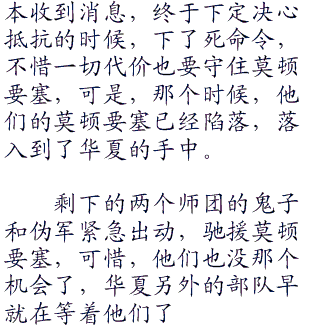 本收到消息，终于下定决心
抵抗的时候，下了死命令，
不惜一切代价也要守住莫顿
要塞，可是，那个时候，他
们的莫顿要塞已经陷落，落
入到了华夏的手中。
剩下的两个师团的鬼子
和伪军紧急出动，驰援莫顿
要塞，可惜，他们也没那个
机会了，华夏另外的部队早
就在等着他们了